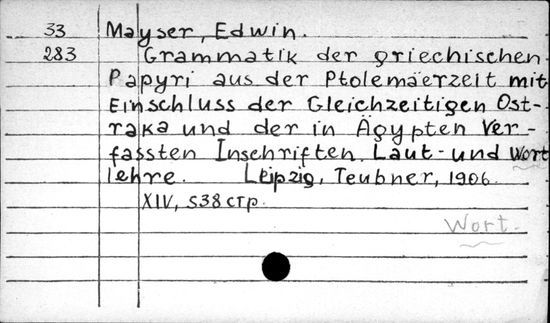 33 Mayser, Edwin.
283 Grammatik der griechischen
Papyri aus der Ptolemäerzeit mit
Einschluss der Gleichzeitigen Ost-
raka und der in Ägypten Ver-
fassten Inschriften. Laut- und Wort
lehre. Leipzig, Teubner, 1906.
XIV, 538 стр.
Wort.